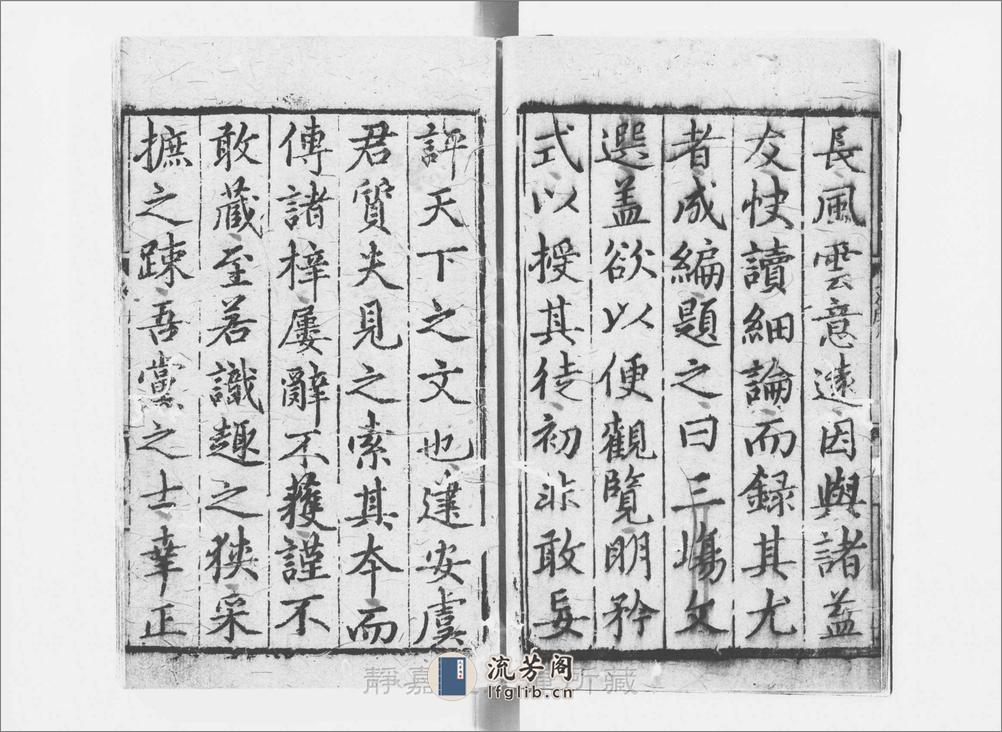 長風雲意遠因與諸益
友快讀細論而録其尤
者成編題之曰三塲文
選盖欲以便觀覽明矜
式以授其徒初非敢妄
評天下之文也建安虞
君質夫見之索其本而
傳諸梓屢辭不獲謹不
敢藏至若識趣之狹采
摭之踈吾黨之士幸正
流芳阁
lfglib.cn
靜嘉 所藏